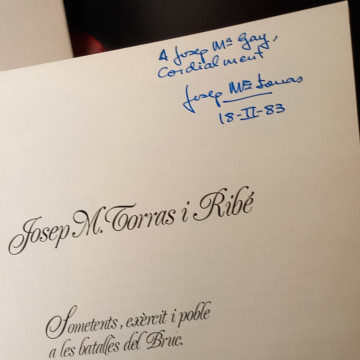 A Josep Mª Gay,
Cordialment
Josep Mª Torras
18-II-83
Josep M. Torras i Ribé
Sometents, exèrcit i poble
a les batalles del Bruc.